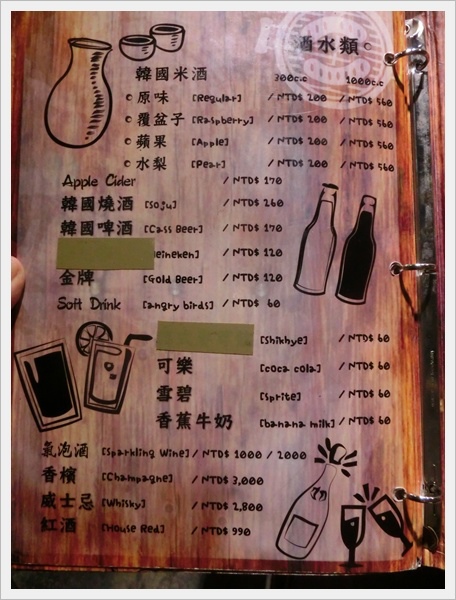 酒水類
韓國米酒 300c.c 1000c.c
原味 [Regular] / NTD$ 200 / NTD$ 560
覆盆子 [Raspberry] / NTD$ 200 / NTD$ 560
蘋果 [Apple] / NTD$ 200 / NTD$ 560
水梨 [Pear] / NTD$ 200 / NTD$ 560
Apple Cider / NTD$ 170
韓國燒酒 [Soju] / NTD$ 260
韓國啤酒 [Cass Beer] / NTD$ 170
Heineken] / NTD$ 120
金牌 [Gold Beer] / NTD$ 120
Soft Drink [angry birds] / NTD$ 60
[Shikhye] / NTD$ 60
可樂 [coca cola] / NTD$ 60
雪碧 [sprite] / NTD$ 60
香蕉牛奶 [banana milk] / NTD$ 60
氣泡酒 [Sparkling Wine] / NTD$ 1000 / 2000
香檳 [Champagne] / NTD$ 3,000
威士忌 [Whisky] / NTD$ 2,800
紅酒 [House Red] / NTD$ 990